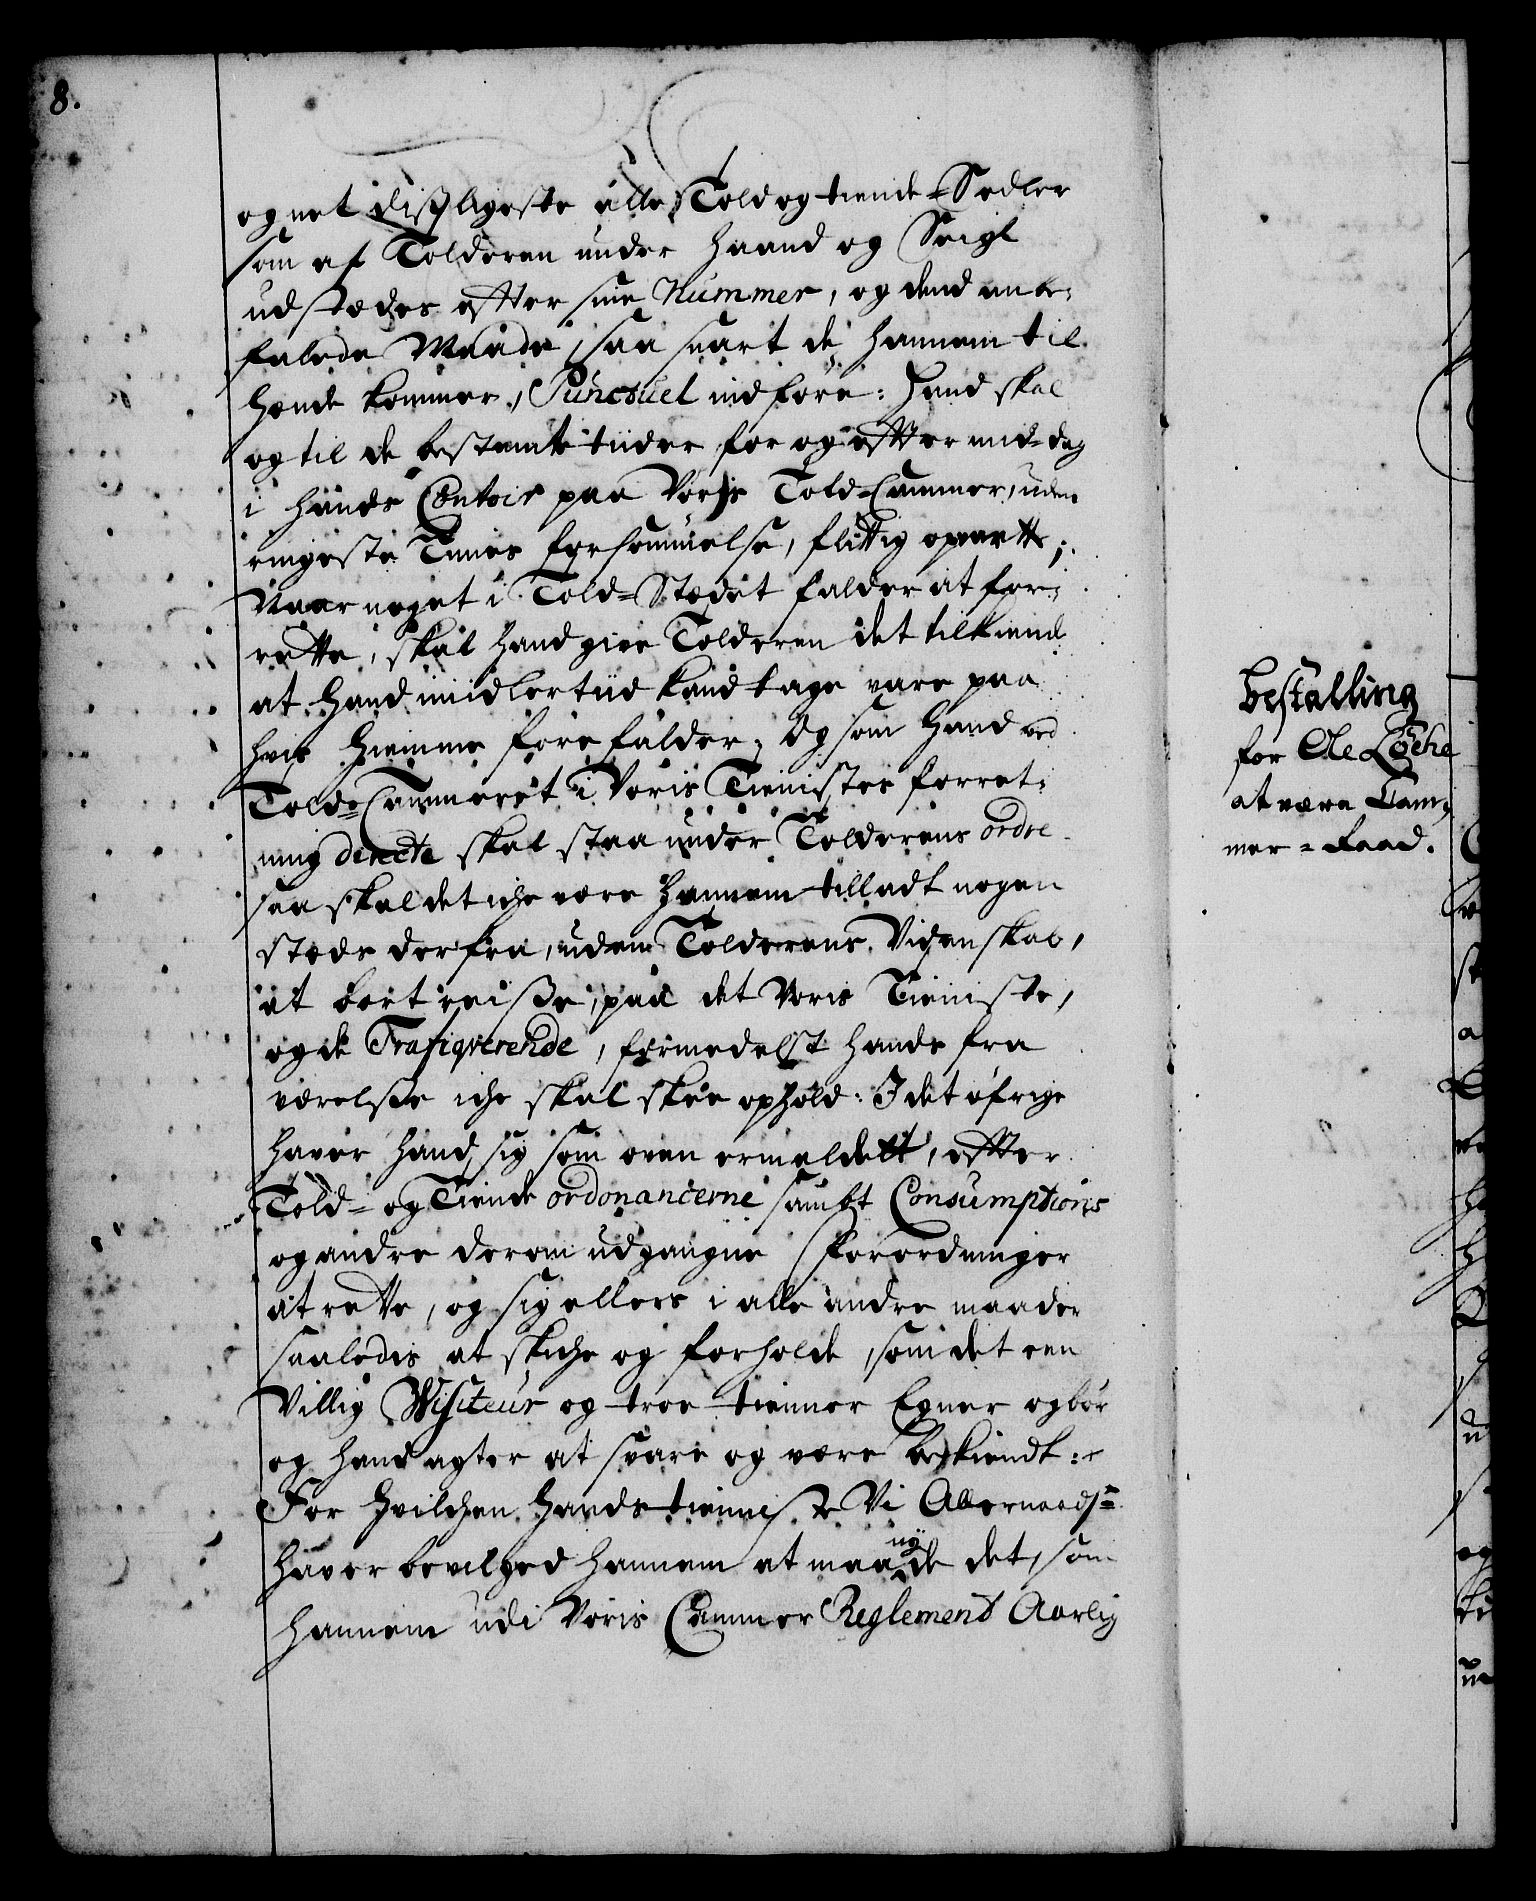 8.
og net dißligeste alle Told og tiende-Sedler
som af Tolderen under haand og Seigl
udstædes efter sine Nummer, og dend anbe-
falede Maade, saa snart de hannem til
hænde kommer, Punctuel indføre: Hand skal
og til de bestemte tiider for og efftermid-dag
i hands Contoir paa Voris Told-Cammer, uden
ringeste Times forsømmelse, flittig opvartte;
Naar noget i Told-Stædet falder at for-
rette, skal hand give Tolderen det tilkiende
at hand midlertiid kand tage vare paa
hvis hiemme forefalder; Og som hand ved
Told-Cammeret i Voris Tienistes forret-
ning directe skal staa under Tolderens ordre
saa skal det iche være hannem tilladt nogen
steds derfra, uden Tolderens Videnskab,
at bortreiße, paa det Voris Tieniste,
og de Trafiqverende, formedelst hands fra
værelße iche skal skee ophold: I det øfrige
haver hand sig som oven ermeldett, effter
Told- og Tiende ordonancerne sambt Consumptions
og andre derom udgangne Forordninger
at rette, og sig ellers i alle andre maader
saaledis at skiche og forholde, som det een
Villig Visiteur og troe tienner Egner og bør
og hand agter at svare og være bekiendt:
For hvilchen hands tienniste Vi Allernaadst
haver bevilged hannem at maa nyde det, som
hannem udi Voris Cammer Reglement Aarlig
Bestalling
for Ole Løche
at være Cam-
mer-Raad.